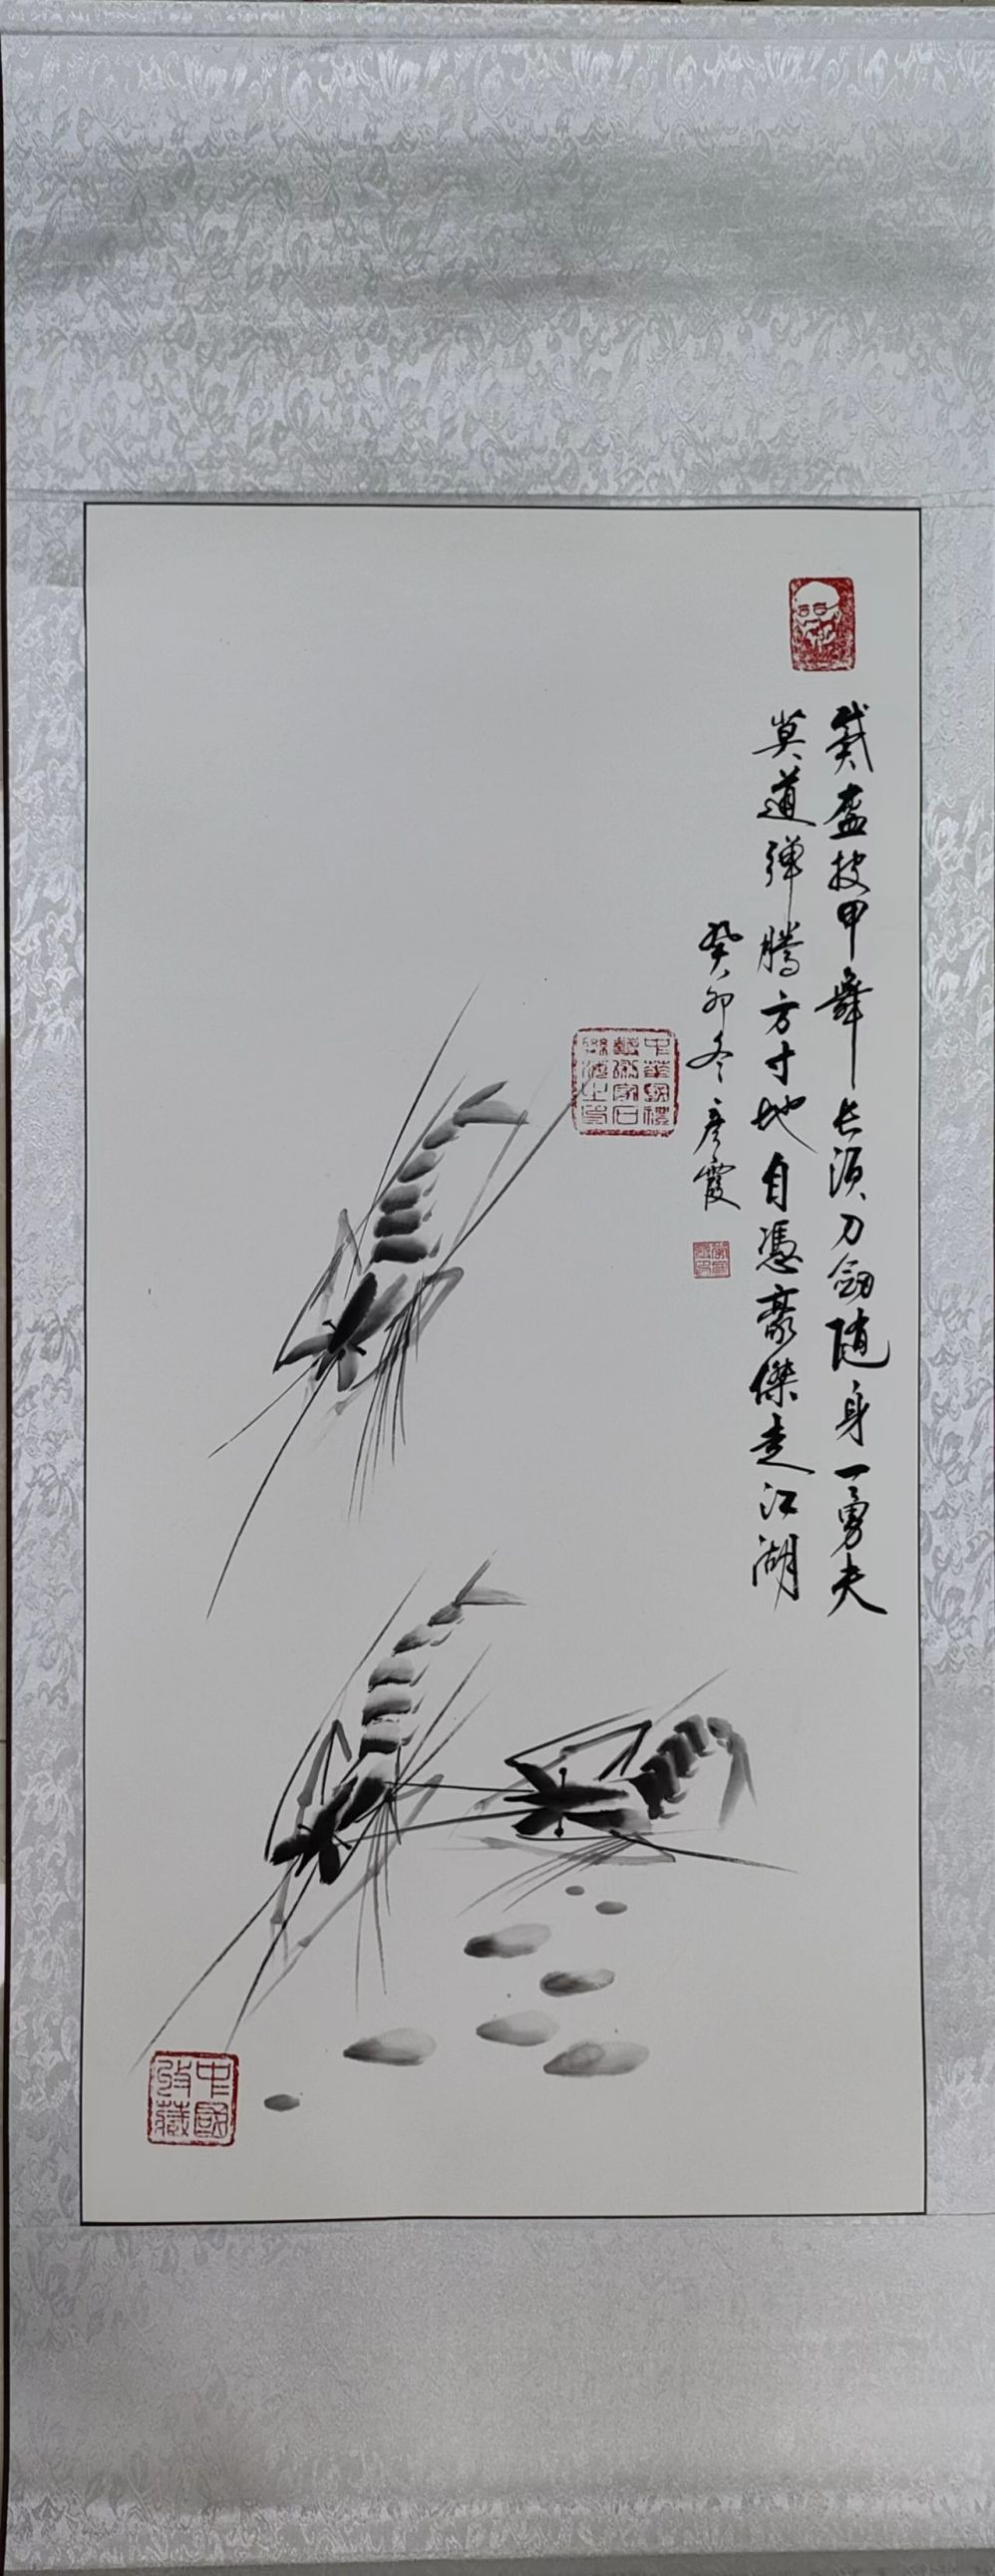 戴盔披甲舞长须刀剑随身一勇夫
莫道弹腾方寸地自凭豪傑走江湖
癸卯冬彦霞
中國
收藏